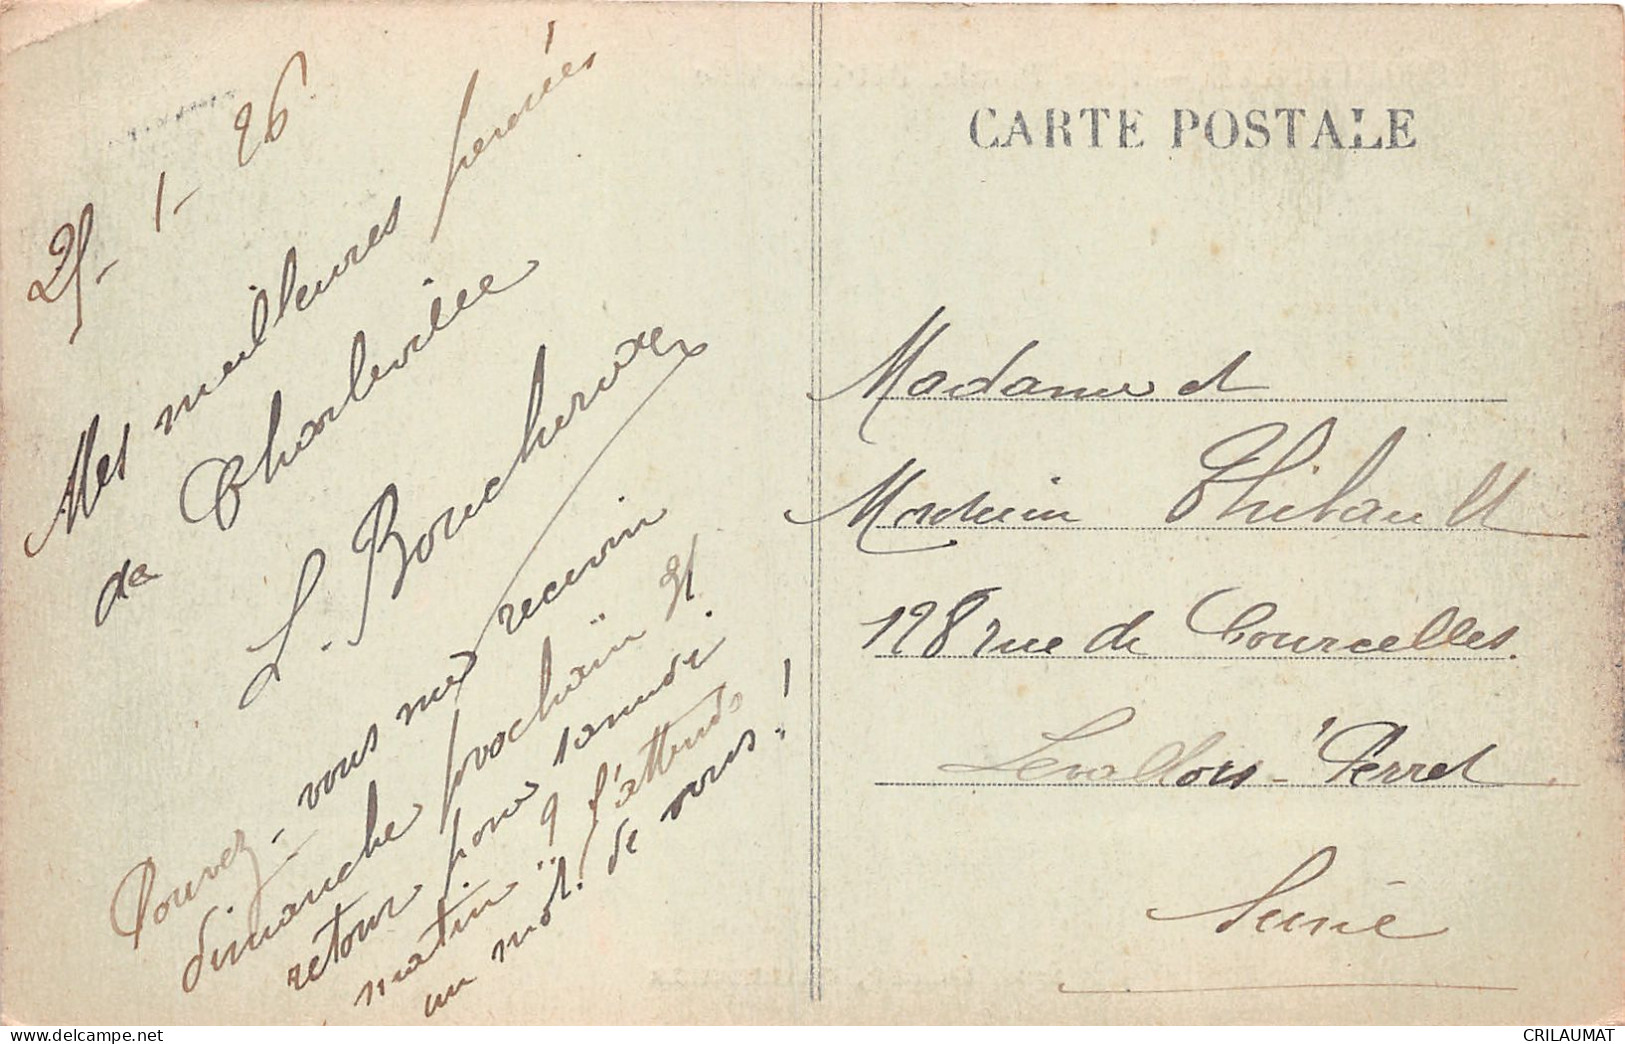 25-1-26
Mes meilleures pensées
de Charleville
L. Boucheroux
Pouvez-vous me recevoir
dimanche prochain 31
retour pour samedi
matin ? J'attends
un mot de vous !
CARTE POSTALE
Madame et
Monsieur Thibault
128 rue de Courcelles.
Levallois-Perret
Seine
CRILAUMAT